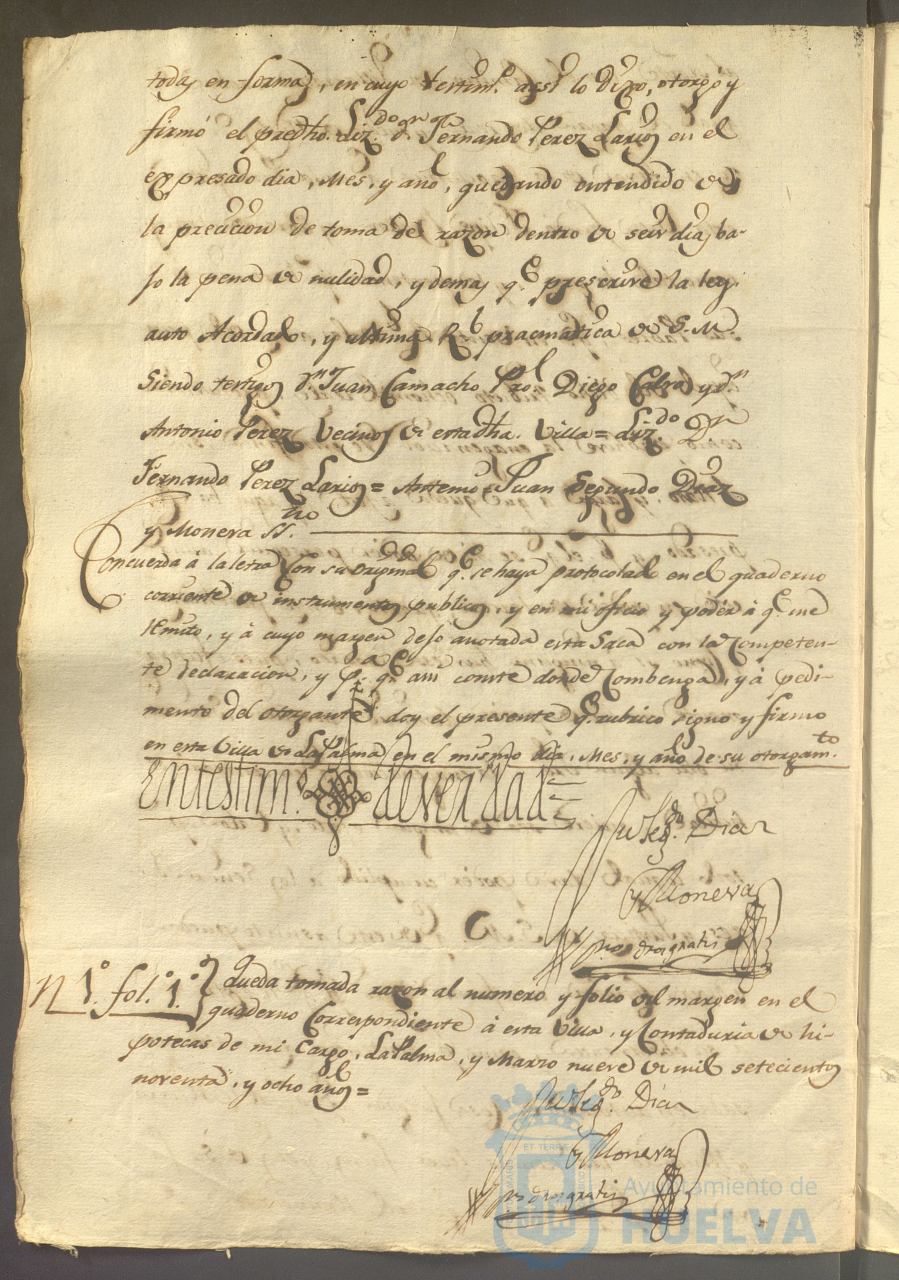 todas en forma, en cuyo testimº. assi lo dixo, otorgó y
firmó el predho. Lizdo. dn. Fernando Perez Larios en el
expresado dia, Mes, y año, quedando entendido de
la precicion de toma de razon dentro de seis dias, ba-
jo la pena de nulidad, y demas qe. prescrive la ley,
auto Acordado, y ultima Rl. pracmatica de S.M.
Siendo testigos Dn. Juan Camacho Diego y dn.
Antonio Perez Vecinos de esta dha. Villa = Lizdo. Dn.
Fernando Perez Larios = Antemi: Juan Segundo Diaz
y Monera SSno.
Concuerda a la letra con su original qe. se haya protocolado en el quaderno
corriente de instrumentos publicos, y en mi oficio y poder á qe. me
remito, y á cuyo margen dejo anotada esta Saca con la Competen-
te declaracion, y pa. qe. assi conste donde Combenga, y á pedi-
mento del otorgante doy el presente qe. rubrico signo y firmo
en esta Villa de La Palma en el mismo dia, Mes, y año de su otorgamto.
En testim. de verdad
Jn Segdo. Diaz
y Monera
nos dros gratis
N 1º. fol. 1º. Queda tomada razon al numero y folio del margen en el
quaderno Correspondiente á esta Villa, y Contaduria de hi-
potecas de mi Cargo, La Palma, y Marzo nueve de mil setecientos
noventa, y ocho años =
Jn Segdo. Diaz
y Monera
nos dros gratis
Ayuntamiento de
HUELVA